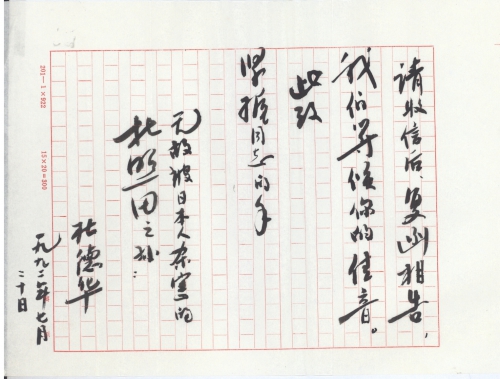 请收信后、复函相告,
我们等候你的佳音。
此致
紧握同志的手
无故被日本人杀害的
杜 田之孙:
杜德华
一九九二年七月
二十日
15×20=300